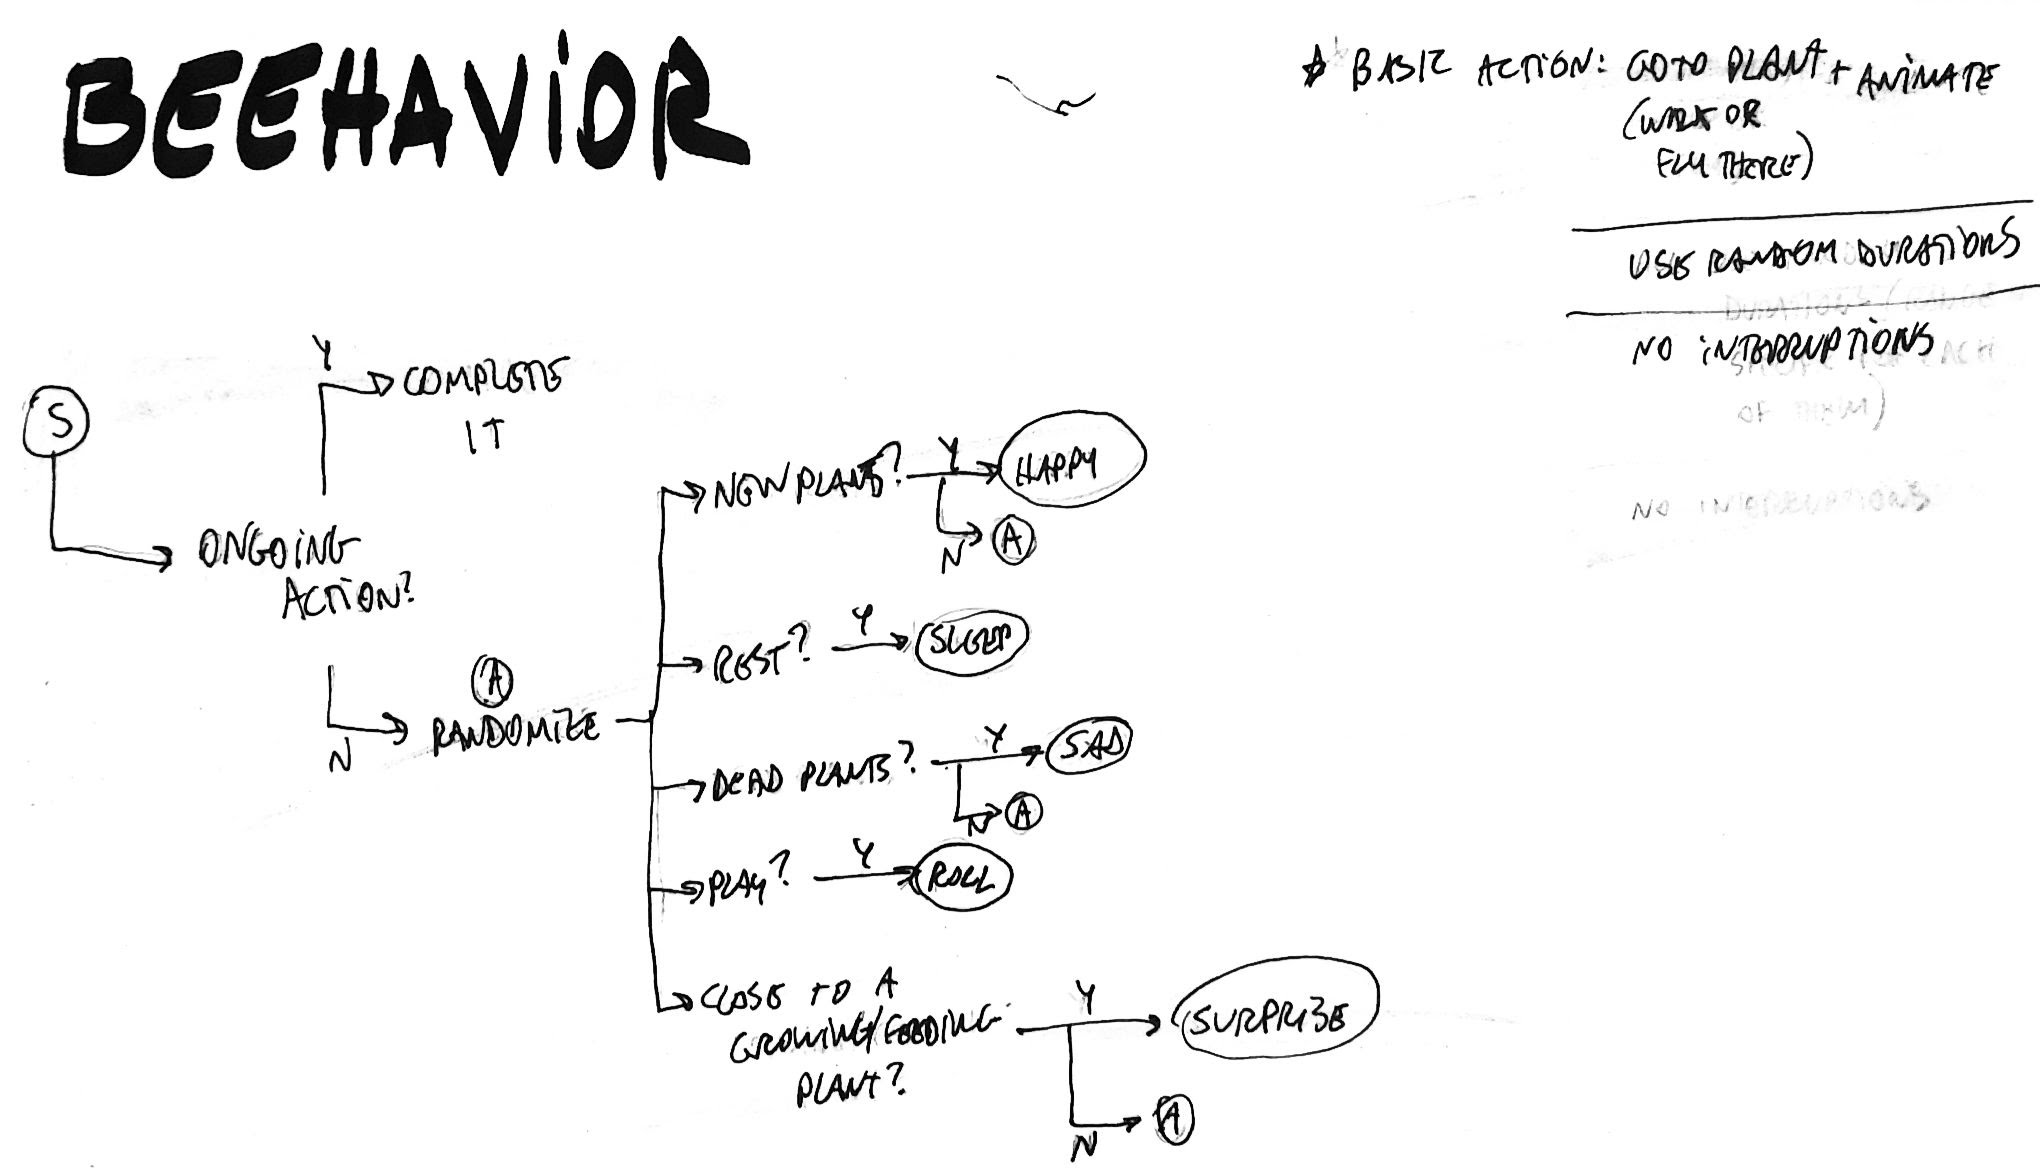 BEEHAVIOR
BASIC ACTION: GO TO PLANT + ANIMATE
(WALK OR
FLY THERE)
USE RANDOM DURATIONS
NO INTERRUPTIONS
OF THEM)
NO INTERRUPTIONS
S
Y
COMPLETE
IT
ONGOING
ACTION?
N
A
RANDOMIZE
NEW PLANT?
Y
HAPPY
N
A
REST?
Y
SLEEP
DEAD PLANTS?
Y
SAD
N
A
PLAY?
Y
ROLL
CLOSE TO A
GROWING/FEEDING
PLANT?
Y
SURPRISE
N
A